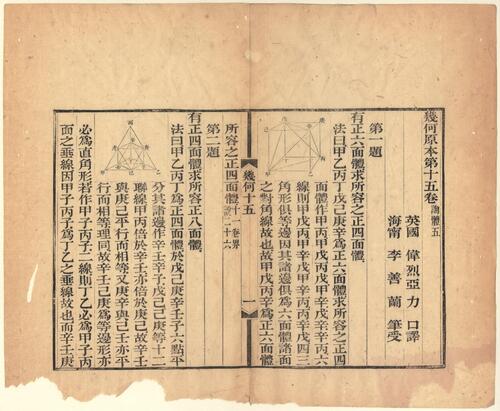 幾何原本第十五卷 論體五
英國 偉烈亞力 口譯
海甯 李善蘭 筆受
第一題
有正六面體求所容之正四面體
法曰甲乙丙丁戊己庚辛爲正六面體求所容之正四
面體作甲丙甲戊丙戊甲辛戊辛辛丙六
線則甲戊丙甲戊辛甲辛丙丙辛戊四三
角形俱等邊因其諸邊俱爲六面體諸面
之對角線故也故甲戊丙辛爲正六面體
所容之正四面體
幾何十五
一
第二題
有正四面體求所容正八面體
法曰甲乙丙丁爲正四面體於戊己庚辛壬子六點平
分其諸邊作辛壬辛子戊己己庚等十二
聯線甲丙倍於辛壬亦倍於庚己故辛壬
與庚己平行而相等又庚辛與己壬亦平
行而相等理同故辛壬庚己爲等邊形亦
必爲直角形若作甲子丙子二線則丁乙必爲甲子丙
面之垂線因甲子丙子爲丁乙之垂線故也而辛壬庚